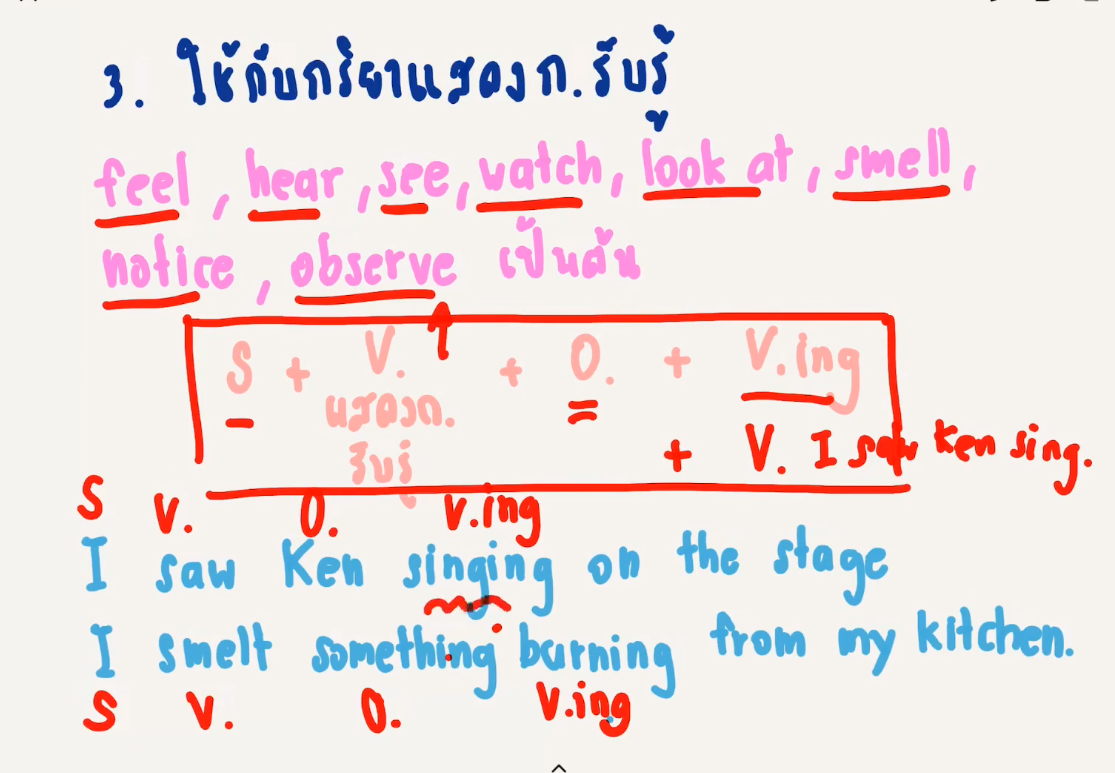 3. ใช้กับกริยาแสดงก.รับรู้
feel, hear, see, watch, look at, smell,
notice, observe เป็นต้น
S + V. + O. + V.ing
แสดงก.
รับรู้
+ V. I saw Ken sing.
S V. O. V.ing
I saw Ken singing on the stage
I smelt something burning from my kitchen.
S V. O. V.ing